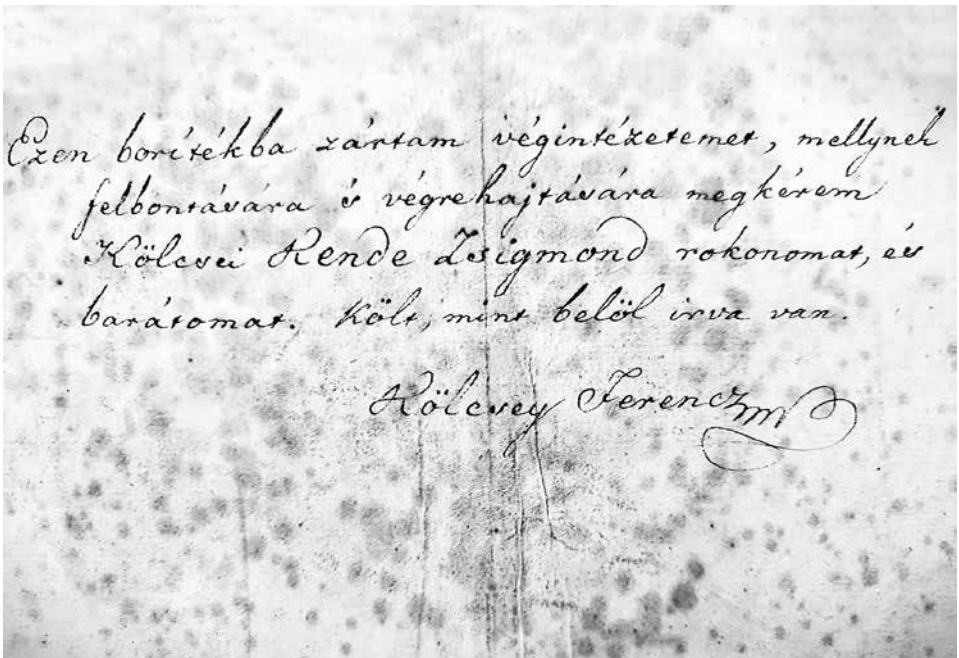 Ezen borítékba zártam végintézetemet, mellynek
felbontására és végrehajtására megkérem
Kölcsei Kende Zsigmond rokonomat, és
barátomat. Költ, mint belöl irva van.
Kölcsey Ferencz